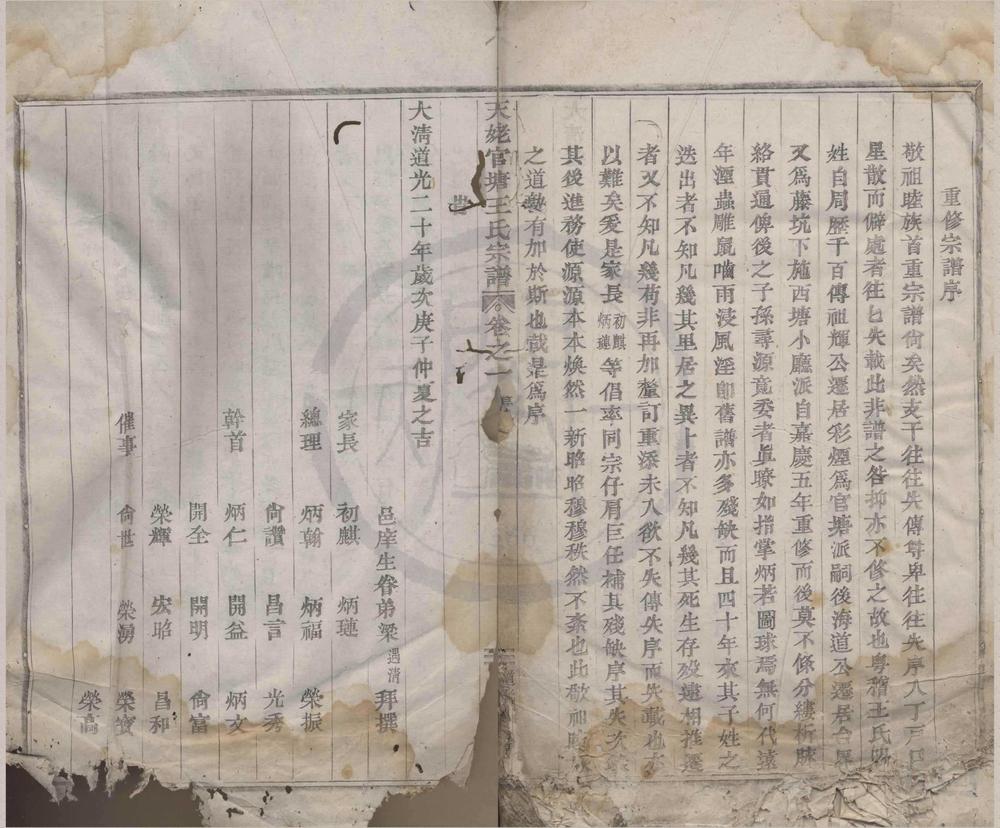 重修宗譜序
敬祖睦族首重宗譜尙矣然支干往往失傳尊卑往往失序人丁戶口
星散而僻處者往匕失載此非譜之咎抑亦不修之故也粤稽王氏賜
姓自周歷千百傳祖輝公遷居彩煙爲官塘派嗣後海道公遷居今
又爲藤坑下施西塘小廳派自嘉慶五年重修而後莫不條分縷析脉
絡貫通俾後之子孫尋源竟委者眞瞭如指掌炳若圖球焉無何代遠
年湮蟲雕鼠嚙雨浸風淫卽舊譜亦多殘缺而且四十年來其子姓之
迭出者不知凡幾其里居之異卜者不知凡幾其死生存殁遞相推遷
者又不知凡幾苟非再加釐訂重添未入欲不失傳失序而失載也亦
以難矣爰是家長初麒炳璉等倡率同宗仔肩巨任補其殘缺序其失次
其後進務使源源本本煥然一新昭昭穆穆秩然不紊也此敬祖睦
之道獘有加於斯也哉是爲序
天姥官塘王氏宗譜 卷之一 序
大淸道光二十年歲次庚子仲夏之吉
邑庠生眷弟梁遇淸拜撰
家長 初麒 炳璉
總理 炳翰 炳福 榮振
尙讚 昌言 光秀
幹首 炳仁 開益 炳文
開全 開明 尙富
榮輝 宏昭 昌和
催事 尙世 榮湧 榮寶
榮高